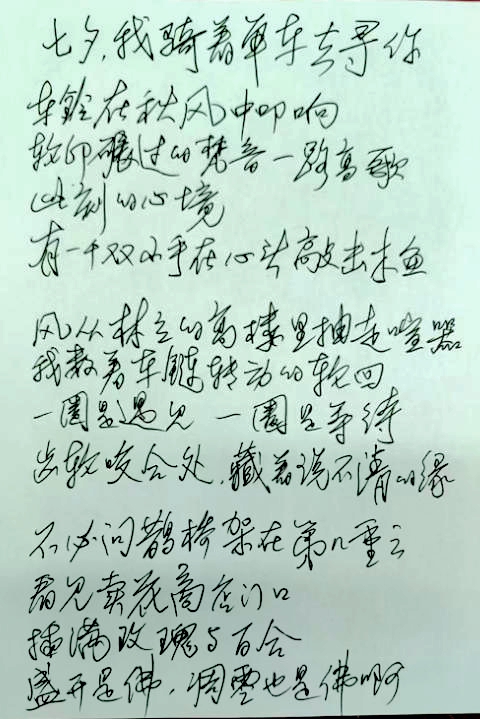 七夕，我骑着单车去寻你
车铃在秋风中叩响
辙印碾过的梵音一路高歌
此刻的心境
有一千双小手在心头敲击木鱼
风从林立的高楼里抽走喧嚣
我数着车链转动的轮回
一圈是遇见 一圈是等待
齿轮咬合处，藏着说不清的缘
不必问鹊桥架在第几重云
看见卖花商店门口
插满玫瑰与百合
盛开是佛，凋零也是佛啊